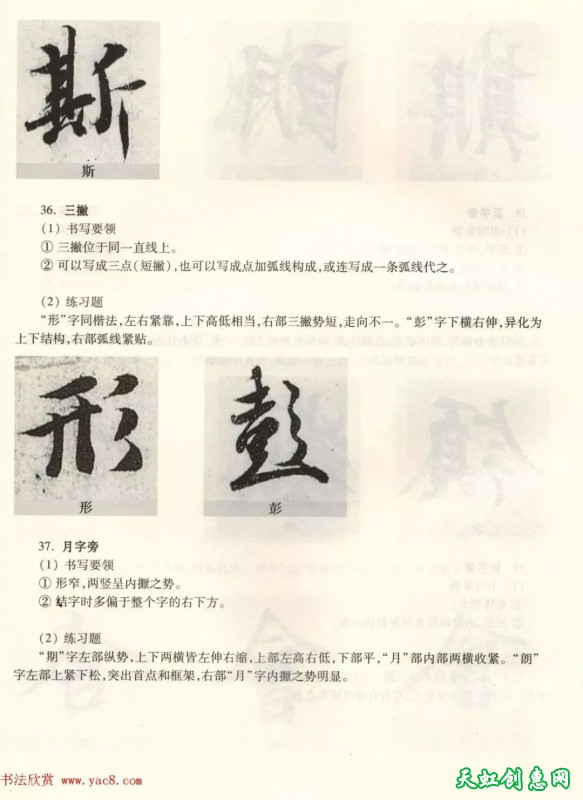 斯
斯
36. 三撇
(1) 书写要领
① 三撇位于同一直线上。
② 可以写成三点(短撇),也可以写成点加弧线构成,或连写成一条弧线代之。
(2) 练习题
“形”字同楷法,左右紧靠,上下高低相当,右部三撇势短,走向不一。“彭”字下横右伸,异化为
上下结构,右部弧线紧贴。
形 彭
形 彭
37. 月字旁
(1) 书写要领
① 形窄,两竖呈内擫之势。
② 结字时多偏于整个字的右下方。
(2) 练习题
“期”字左部纵势,上下两横皆左伸右缩,上部左高右低,下部平,“月”部内部两横收紧。“朗”
字左部上紧下松,突出首点和框架,右部“月”字内擫之势明显。
书法欣赏 www.yac8.com
天虹创意网